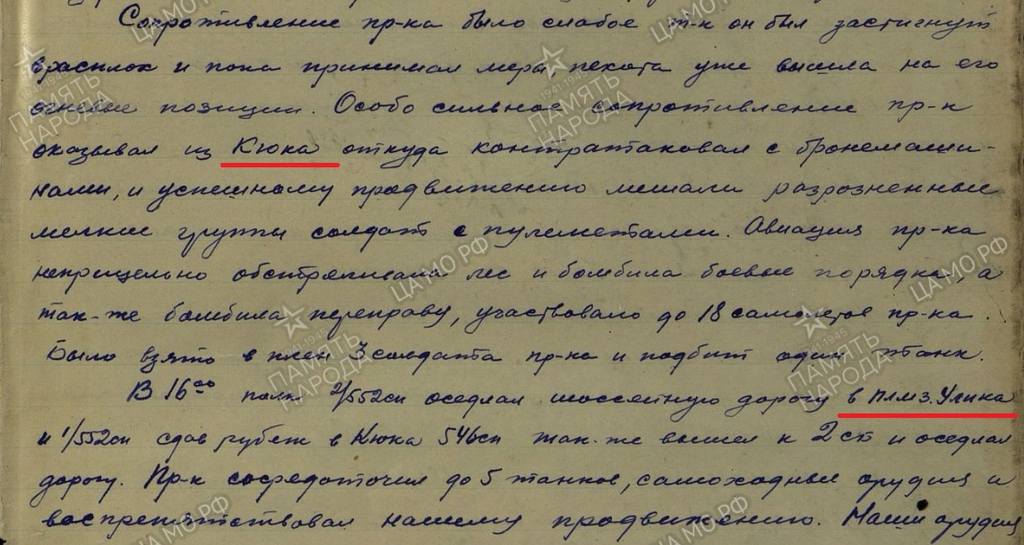 Сопротивление пр-ка было слабое т-к он был застигнут
врасплох и пока принимал меры, пехота уже вышла на его
огневые позиции. Особо сильное сопротивление пр-к
оказывал из Кюка откуда контратаковал с бронемаши-
нами, и успешному продвижению мешали разрозненные
мелкие группы солдат с пулеметами. Авиация пр-ка
неприцельно обстреливала лес и бомбила боевые порядки, а
так-же бомбила переправу, участвовало до 18 самолетов пр-ка.
Было взято в плен 3 солдата пр-ка и подбит один танк.
В 16⁰⁰ полк 2/552сп оседлал шоссейную дорогу в плмз. Улика
и 1/552сп сдав рубеж в Кюка 546сп так-же вышел к 2сб и оседлал
дорогу. Пр-к сосредоточил до 5 танков, самоходные орудия и
воспрепятствовал нашему продвижению. Наши орудия
ПАМЯТЬ НАРОДА
1941-1945
ЦАМО РФ